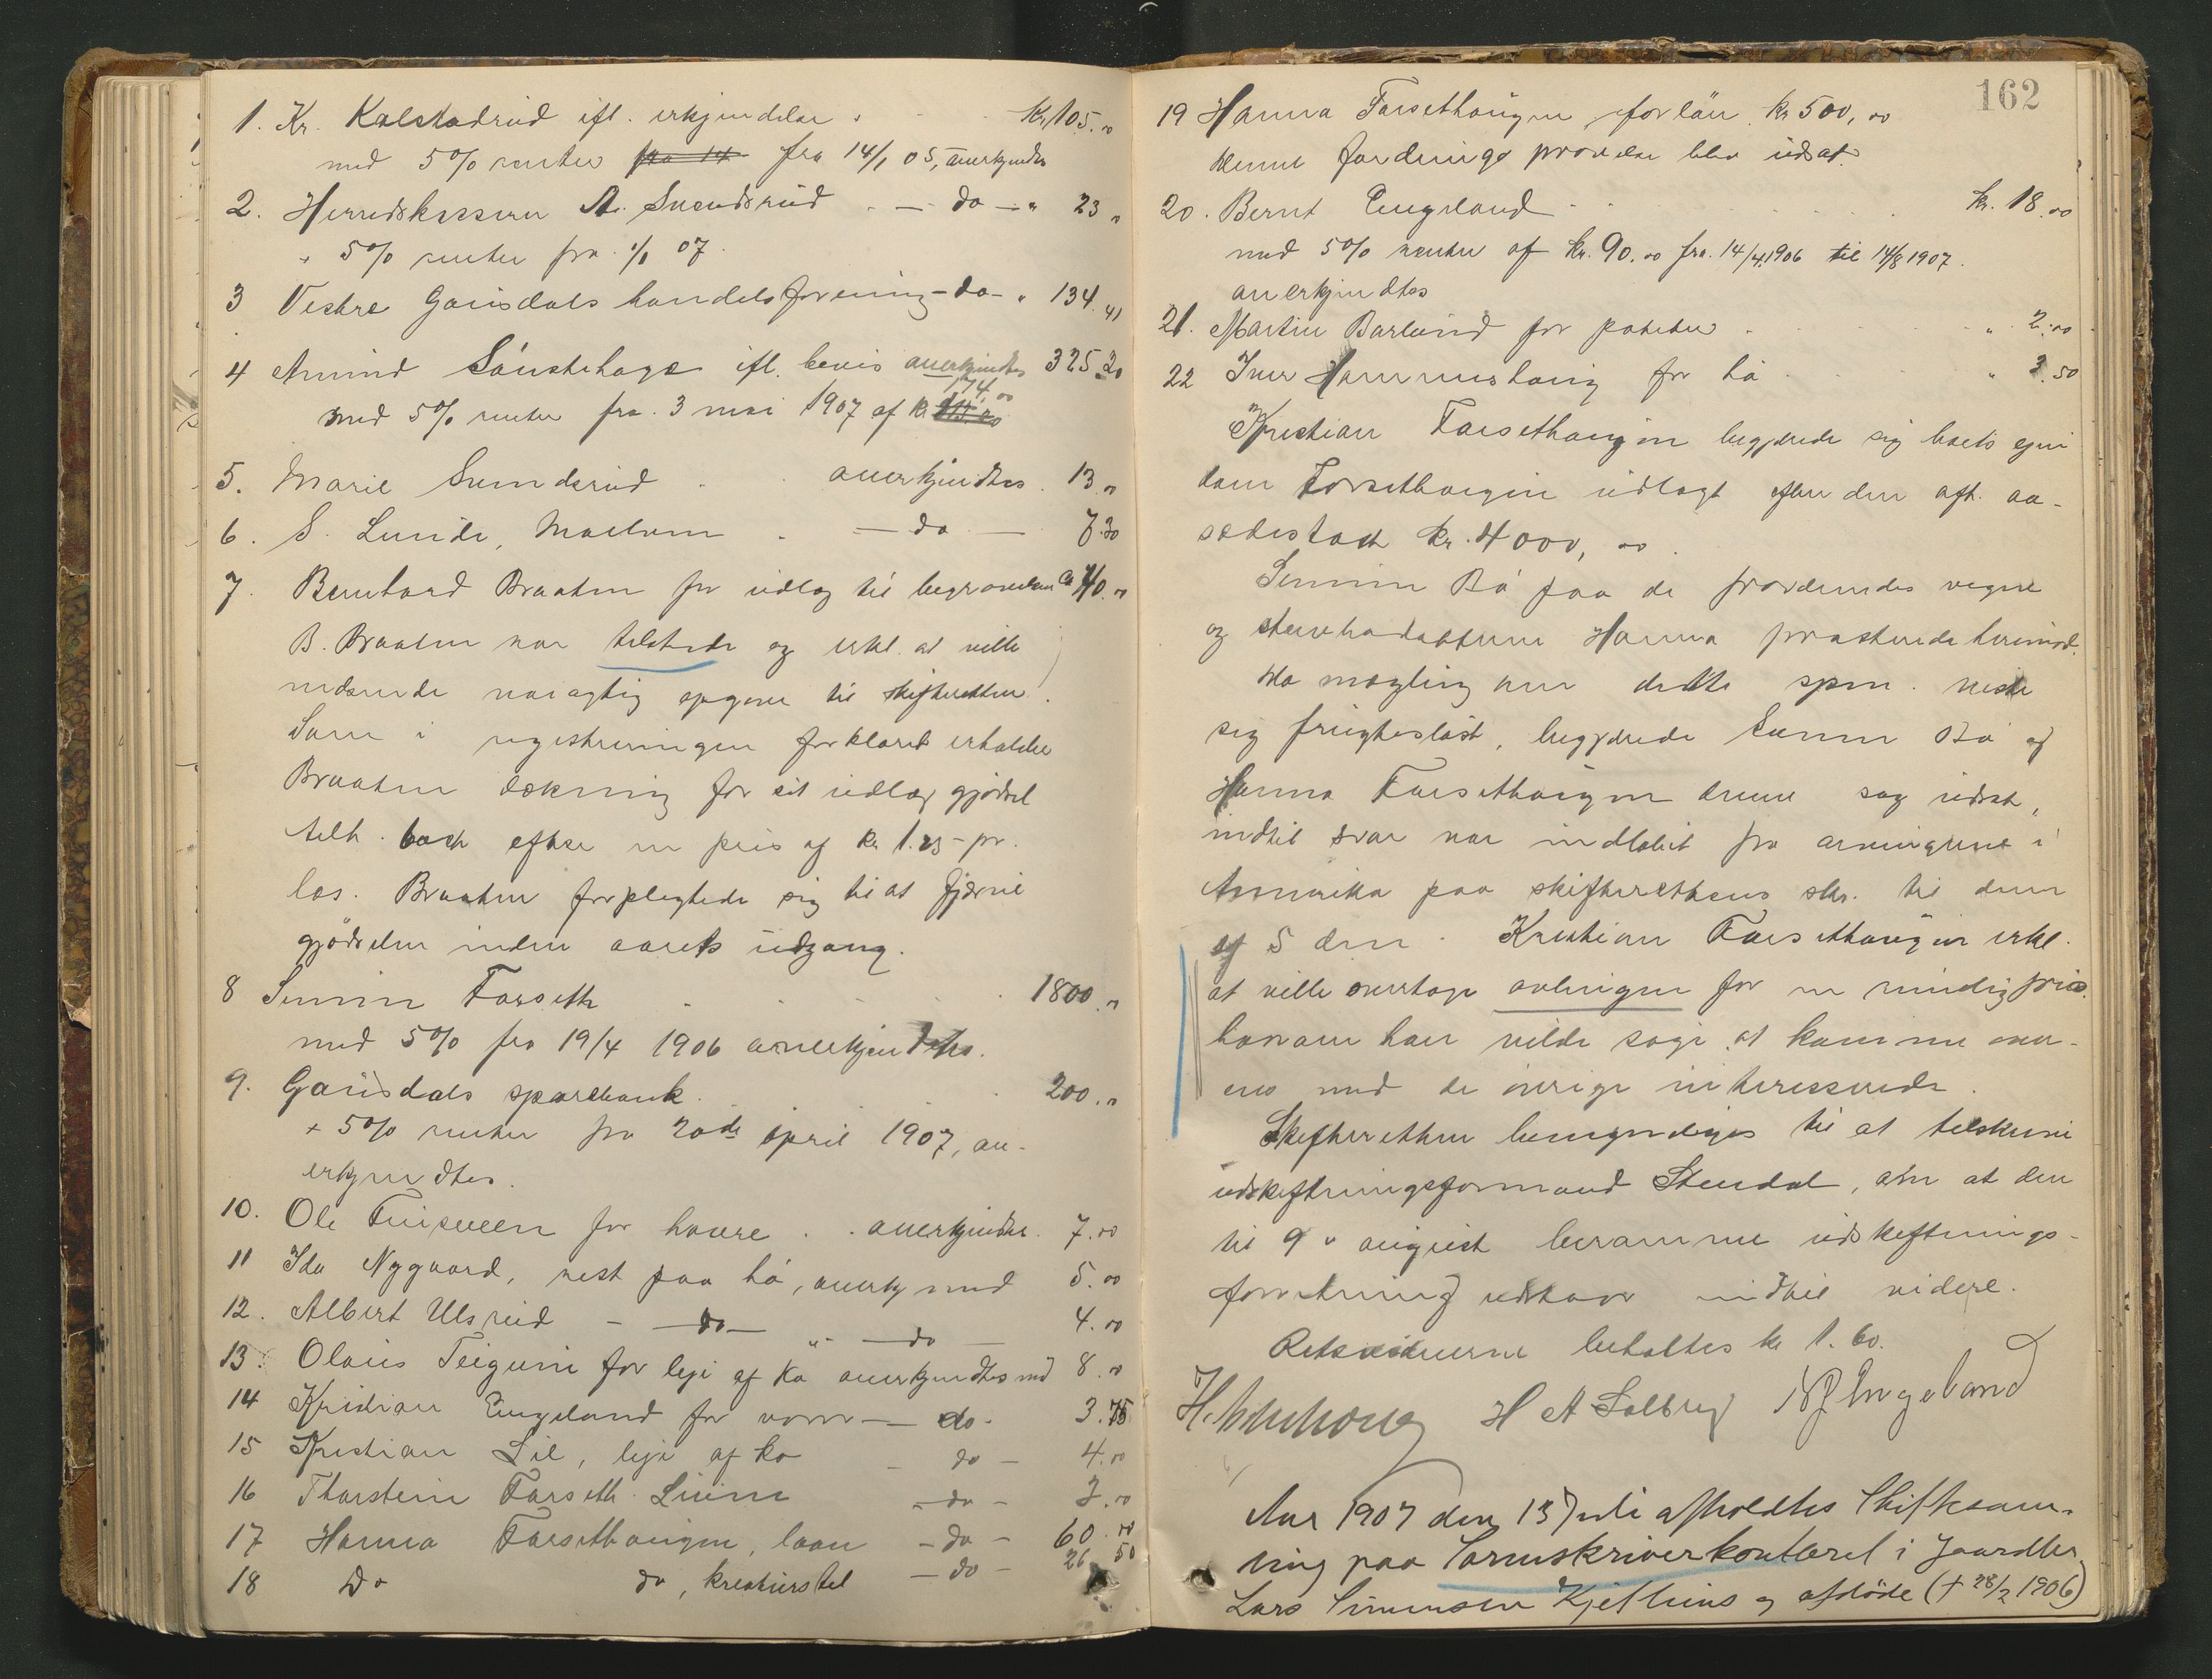 1. Kr. Kalstadrud ifl. erkjendelse . kr. 105.00
med 5% renter fra 14 fra 14/1 05, anerkjendtes
2. Herredskasserer A. Svendsrud . — do — " 23 "
" 5% renter fra 1/1 07.
3 Vestre Gausdals handelsforening – do – " 134.41
4 Amund Sönstehage ifl. bevis anerkjendtes 325.20
174.00
med 5% renter fra 3 mai 1907 af kr
5. Marie Svendsrud . . anerkjendtes . 13.00
6. S. Lunde, Moelven . — do — 7.30
7. Bernhard Braaten for udlæg til begravelsen ca 40.00
B. Braaten var tilstede og erkl. at ville
indsende nöiagtig opgave til skifteretten.
Som i registreringen forklaret erholder
Braaten dækning for sit udlæg gjödsel
tilh. boet efter en pris af kr. 1.25 – pr.
læs. Braaten forpligtede sig til at fjerne
gjödselen inden aarets udgang.
8 Simen Forseth . . . . 1800.00
med 5% fra 19/4 1906 anerkjendtes.
9. Gausdals sparebank . . 200.00
+ 5% renter fra 20de april 1907, an-
erkjendtes.
10. Ole Fuisveen for havre . . anerkjendtes. 7.00
11 Ida Nygaard, rest paa hö, anerkj med 5.00
12. Albert Ulsrud – — do — " — do — 4.00
13. Olaus Teigum for leje af ko anerkjendtes med 8.00
14 Kristian Engeland for varer — do – 3.75
15 Kristian Lie, leje af ko – do – 4.00
16 Thorstein Forseth Lien – do – 2.00
17 Hanna Forsethaugen, laan – do – 60.00
18 Do do, kreaturstel – do – 26.50
162
19 Hanna Forsethaugen for lön kr 500,00
denne fordrings prövelse blev udsat.
20. Bernt Engeland . . . kr. 18.00
med 5% renter af kr. 90.00 fra 14/4 1906 til 14/8 1907.
anerkjendtes
21. Martin Barlund for poteter . . " 2.00
22 Iver Hammershaug for hö . . " 3.50
Kristian Forsethaugen begjærede sig boets ejen
dom Forsethaugen udlagt efter den afh. aa-
sædestaxt kr. 4000,00.
Simen Bö paa de fraværendes vegne
og stervbodatteren Hanna protesterede herimod.
Da mægling om dette spm. viste
sig frugteslöst, begjærede Simen Bö og
Hanna Forsethaugen denne sag udsat,
indtil svar var indlöbet fra arvingerne i
Amerika paa skifterettens skr. til dem
af 5 dm. Kristian Forsethaugen erkl.
at ville overtage avlingen for en rimelig pris.
hvorom han vilde söge at komme over-
ens med de övrige interesserede.
Skifteretten bemyndiges til at tilskrive
udskiftningsformand Stendal, om at den
til 9 " august berammede udskiftnings-
forretning udstaar indtil videre.
Retsvidnerne beholdtes kr 1.60.
H A Solberg N J Engeland
Aar 1907 den 13 Juli afholdtes Skiftesam-
ling paa Sorenskriverkontoret i Gaardbr.
Lars Simensen Kjeflines og afdöde († 28/2 1906)